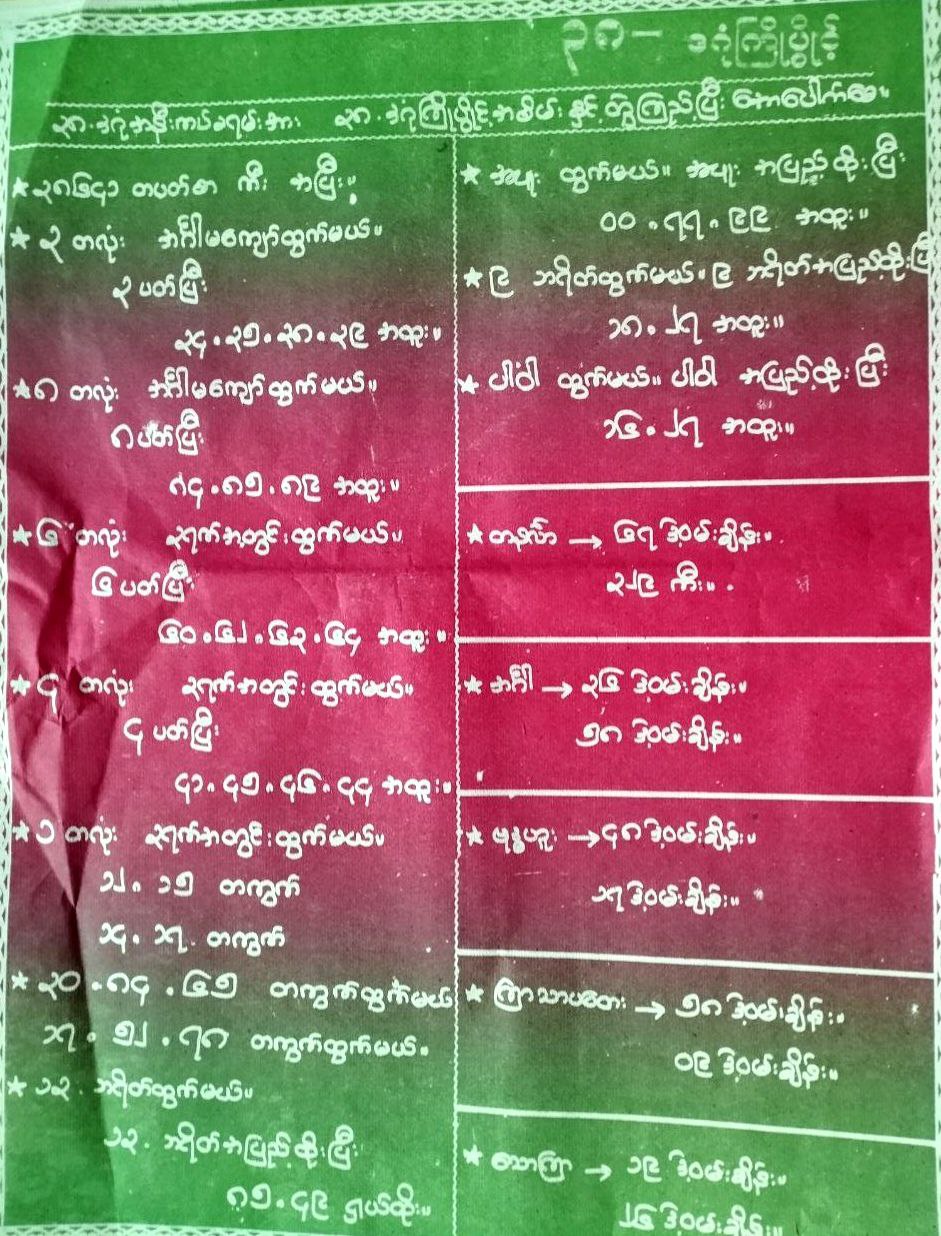 ၃၈ - ဒဂုံကြိုပွိုင့်
၃၈. ဒဂုံအနီးကပ်ခရမ်းအား ၃၈. ဒဂုံကြိုပွိုင့်အစိမ်းနှင့် တွဲကြည့်ပြီး အောပေါက်စေ။
★ ၃၈၆၄၁ တပတ်စာ ကီး အပြီး။
★ ၃ တလုံး အင်္ဂါမကျော်ထွက်မယ်။
၃ ပတ်ပြီး
၃၄.၃၅.၃၈.၃၉ အထူး။
★ ၈ တလုံး အင်္ဂါမကျော်ထွက်မယ်။
၈ ပတ်ပြီး
၈၄.၈၅.၈၉ အထူး။
★ ၆ တလုံး ၃ရက်အတွင်းထွက်မယ်။
၆ ပတ်ပြီး
၆၀.၆၂.၆၃.၆၄ အထူး။
★ ၄ တလုံး ၃ရက်အတွင်းထွက်မယ်။
၄ ပတ်ပြီး
၄၁.၄၅.၄၆.၄၄ အထူး။
★ ၁ တလုံး ၃ရက်အတွင်းထွက်မယ်။
၁၂.၁၅ တကွက်
၁၄.၁၇. တကွက်
★ ၃၀.၈၄.၆၅ တကွက်ထွက်မယ်
၁၇.၅၂.၇၈ တကွက်ထွက်မယ်.
★ ၁၃. ဘရိတ်ထွက်မယ်။
၁၃. ဘရိတ်အပြည့်ထိုးပြီး
၈၅.၄၉ ဌယ်ထိုး။
★ အပူး ထွက်မယ်။ အပူး အပြည့်ထိုးပြီး
၀၀.၇၇.၉၉ အထူး။
★ ၉ ဘရိတ်ထွက်မယ်။ ၉ ဘရိတ်အပြည့်ထိုးပြီး
၁၈.၂၇ အထူး။
★ ပါဝါ ထွက်မယ်။ ပါဝါ အပြည့်ထိုးပြီး
၁၆.၂၇ အထူး။
★ တနင်္လာ → ၆၇ ဒဲ့ဝမ်းချိန်း။
၃၂၉ ကီး။
★ အင်္ဂါ → ၃၆ ဒဲ့ဝမ်းချိန်း။
၅၈ ဒဲ့ဝမ်းချိန်း။
★ ဗုဒ္ဓဟူး → ၄၈ ဒဲ့ဝမ်းချိန်း။
၁၇ ဒဲ့ဝမ်းချိန်း။
★ ကြာသာပတေး → ၅၈ ဒဲ့ဝမ်းချိန်း။
၀၉ ဒဲ့ဝမ်းချိန်း။
★ သောကြာ → ၁၉ ဒဲ့ဝမ်းချိန်း။
၂၆ ဒဲ့ဝမ်းချိန်း။